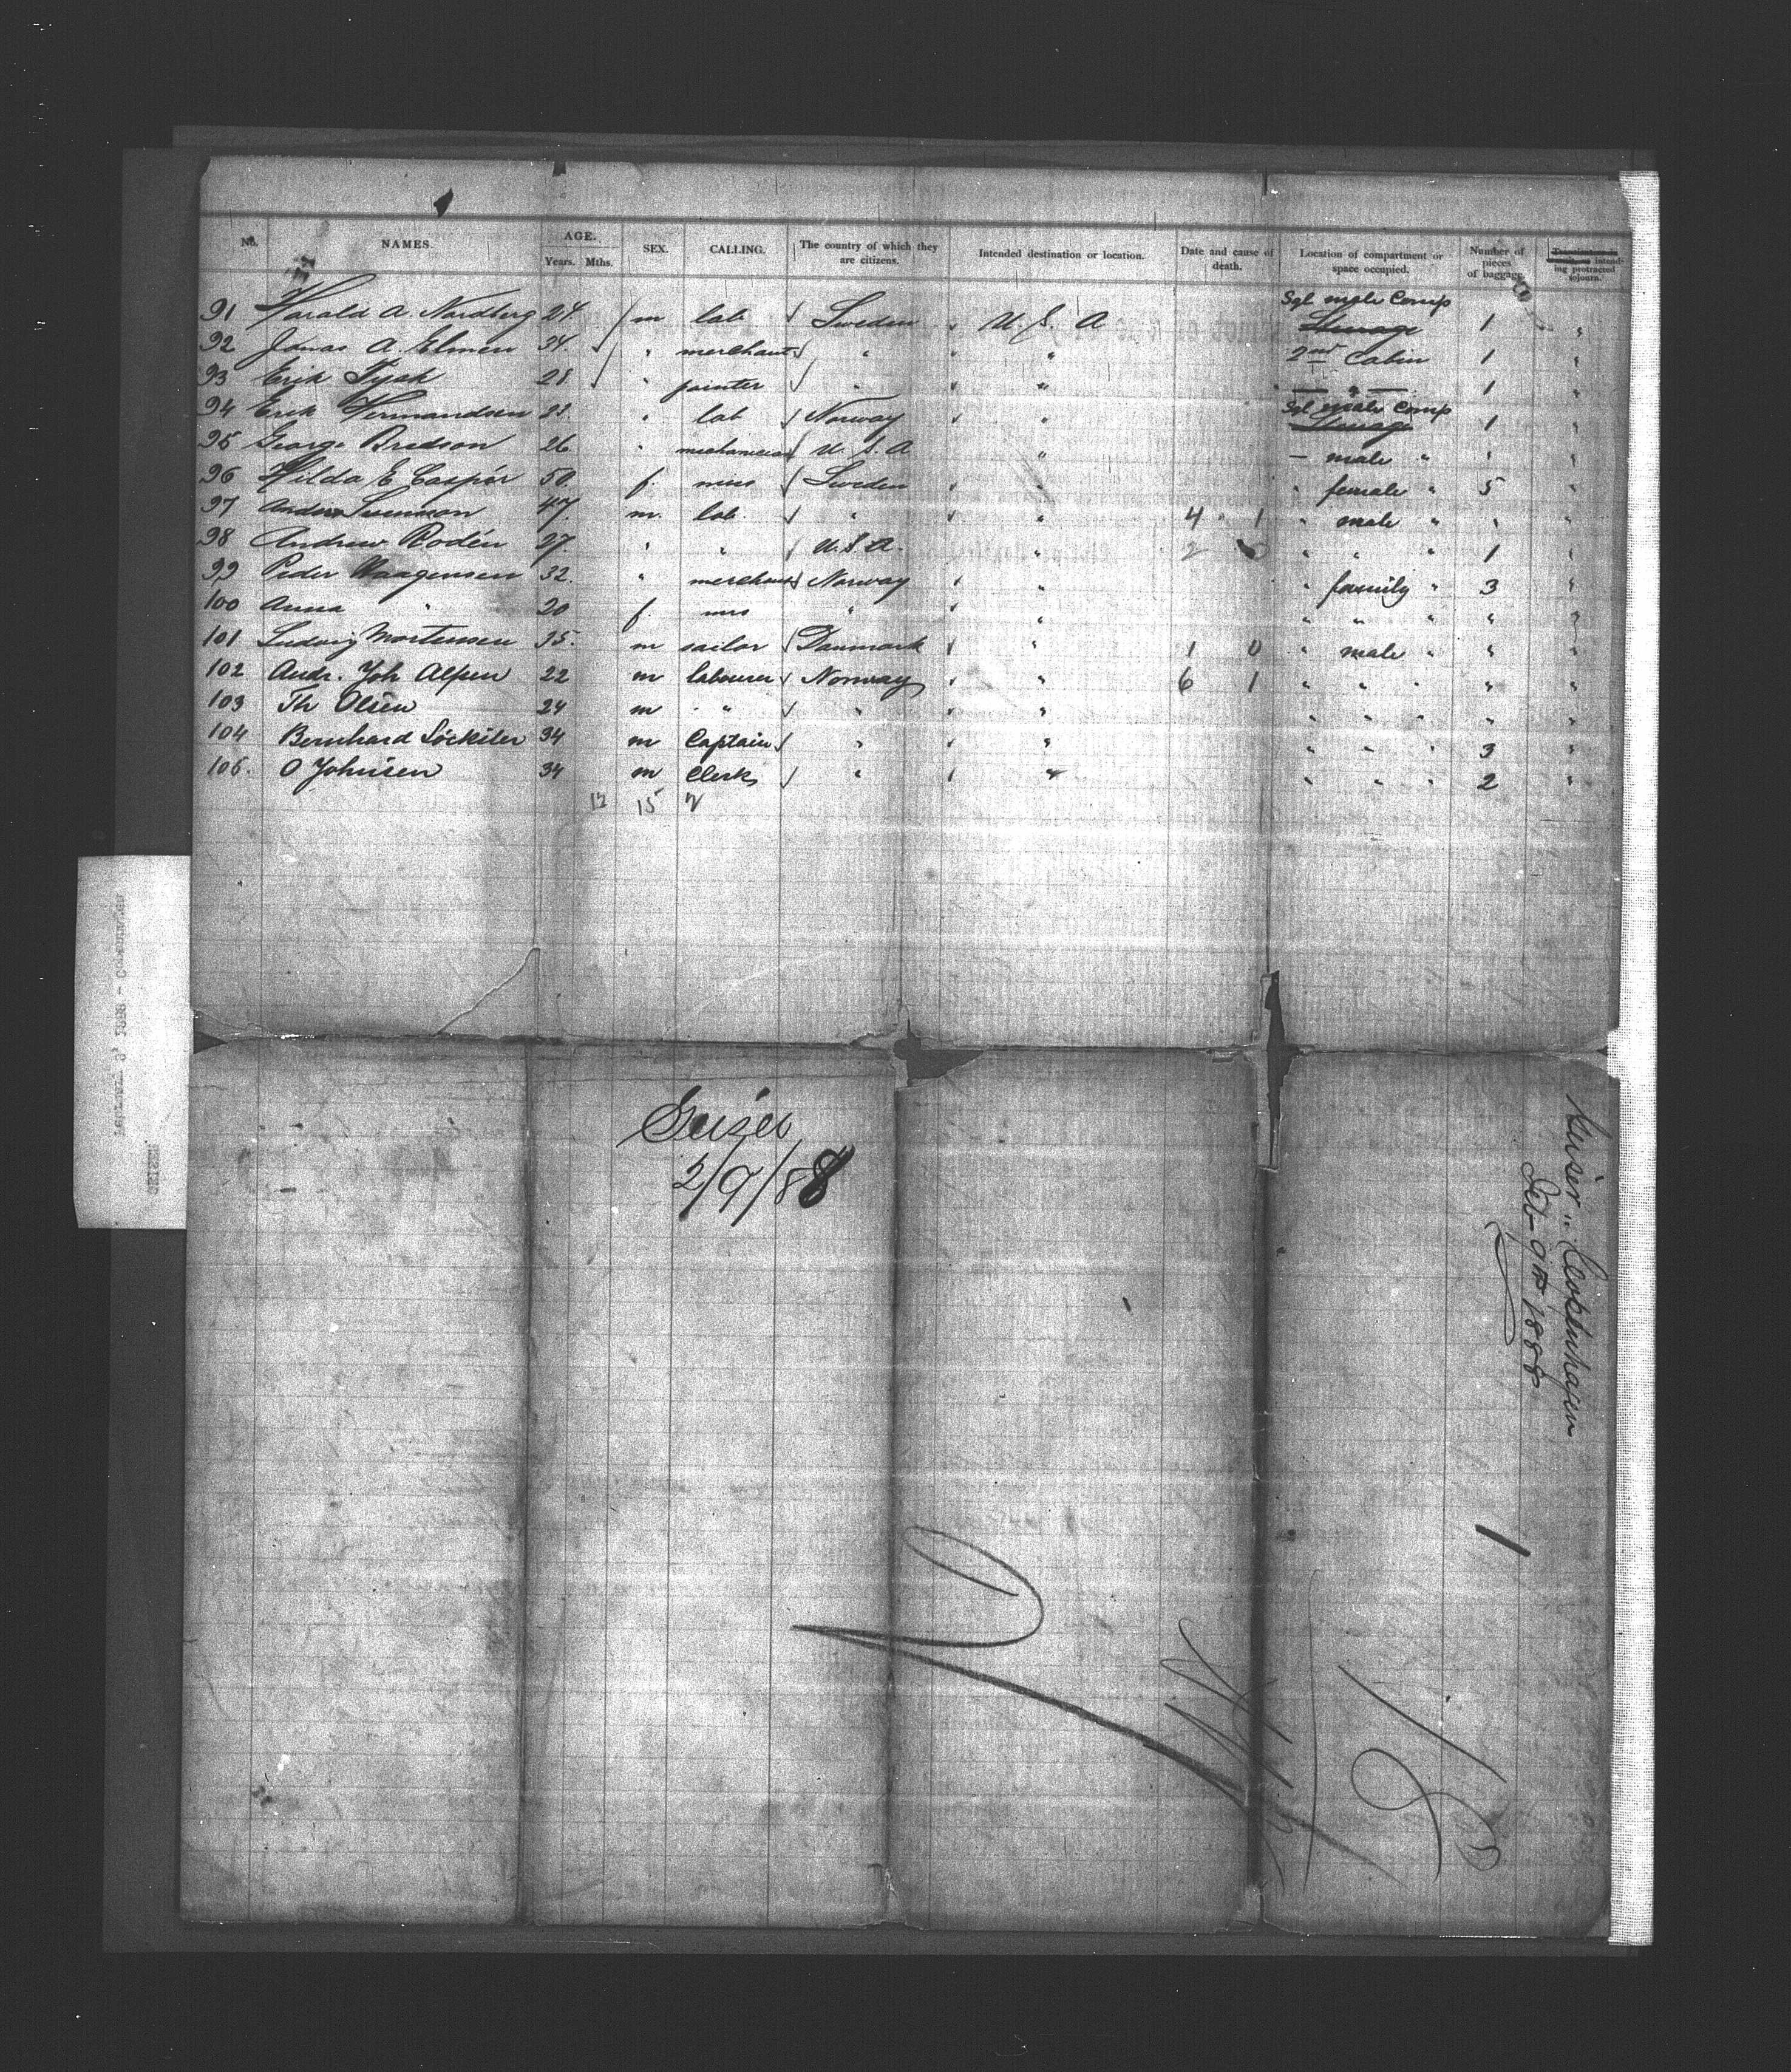 No. NAMES. AGE. Years. Mths. SEX. CALLING. The country of which they are citizens. Intended destination or location. Date and cause of death. Location of compartment or space occupied. Number of pieces of baggage. intending protracted sojourn.
Sgl male Comp
91 Harald A. Nordberg 24. m lab Sweden U. S. A Steerage 1 "
92 Jonas A. Elmen 34. " merchant " " 2nd Cabin 1 "
93 Erik Tysk 28 " painter " " — " — 1 "
Sgl male Comp
94 Erik Hermandsen " lab Norway " Steerage 1 "
95 George Bredson 26 " mechanician U. S. A " — male " " "
96 Hilda E Caspér 50. f. miss Sweden " " female " 5 "
97 Anders Svensson 47. m. lab. " " 4 1 " male " " "
98 Andrew Rodén 27. " " U. S. A. " 2 0 " " " 1 "
99 Peder Haagensen 32. " merchant Norway " " family " 3 "
100 Anna " 20 f. mrs " " " " " " "
101 Ludvig Mortensen 35. m sailor Danmark " 1 0 " male " " "
102 Andr. Joh Alfsen 22 m labourer Norway " 6 1 " " " " "
103 Th Olsen 24 m " " " " " " " "
104 Bernhard 34 m Captain " " " " " 3 "
105. O Johnsen 34 m Clerk " " " " " 2 "
12 15 2
Geiser
2/9/88
Geiser " Copenhagen
Feb 9th 1888
GEISER
February 9, 1888 - Copenhagen